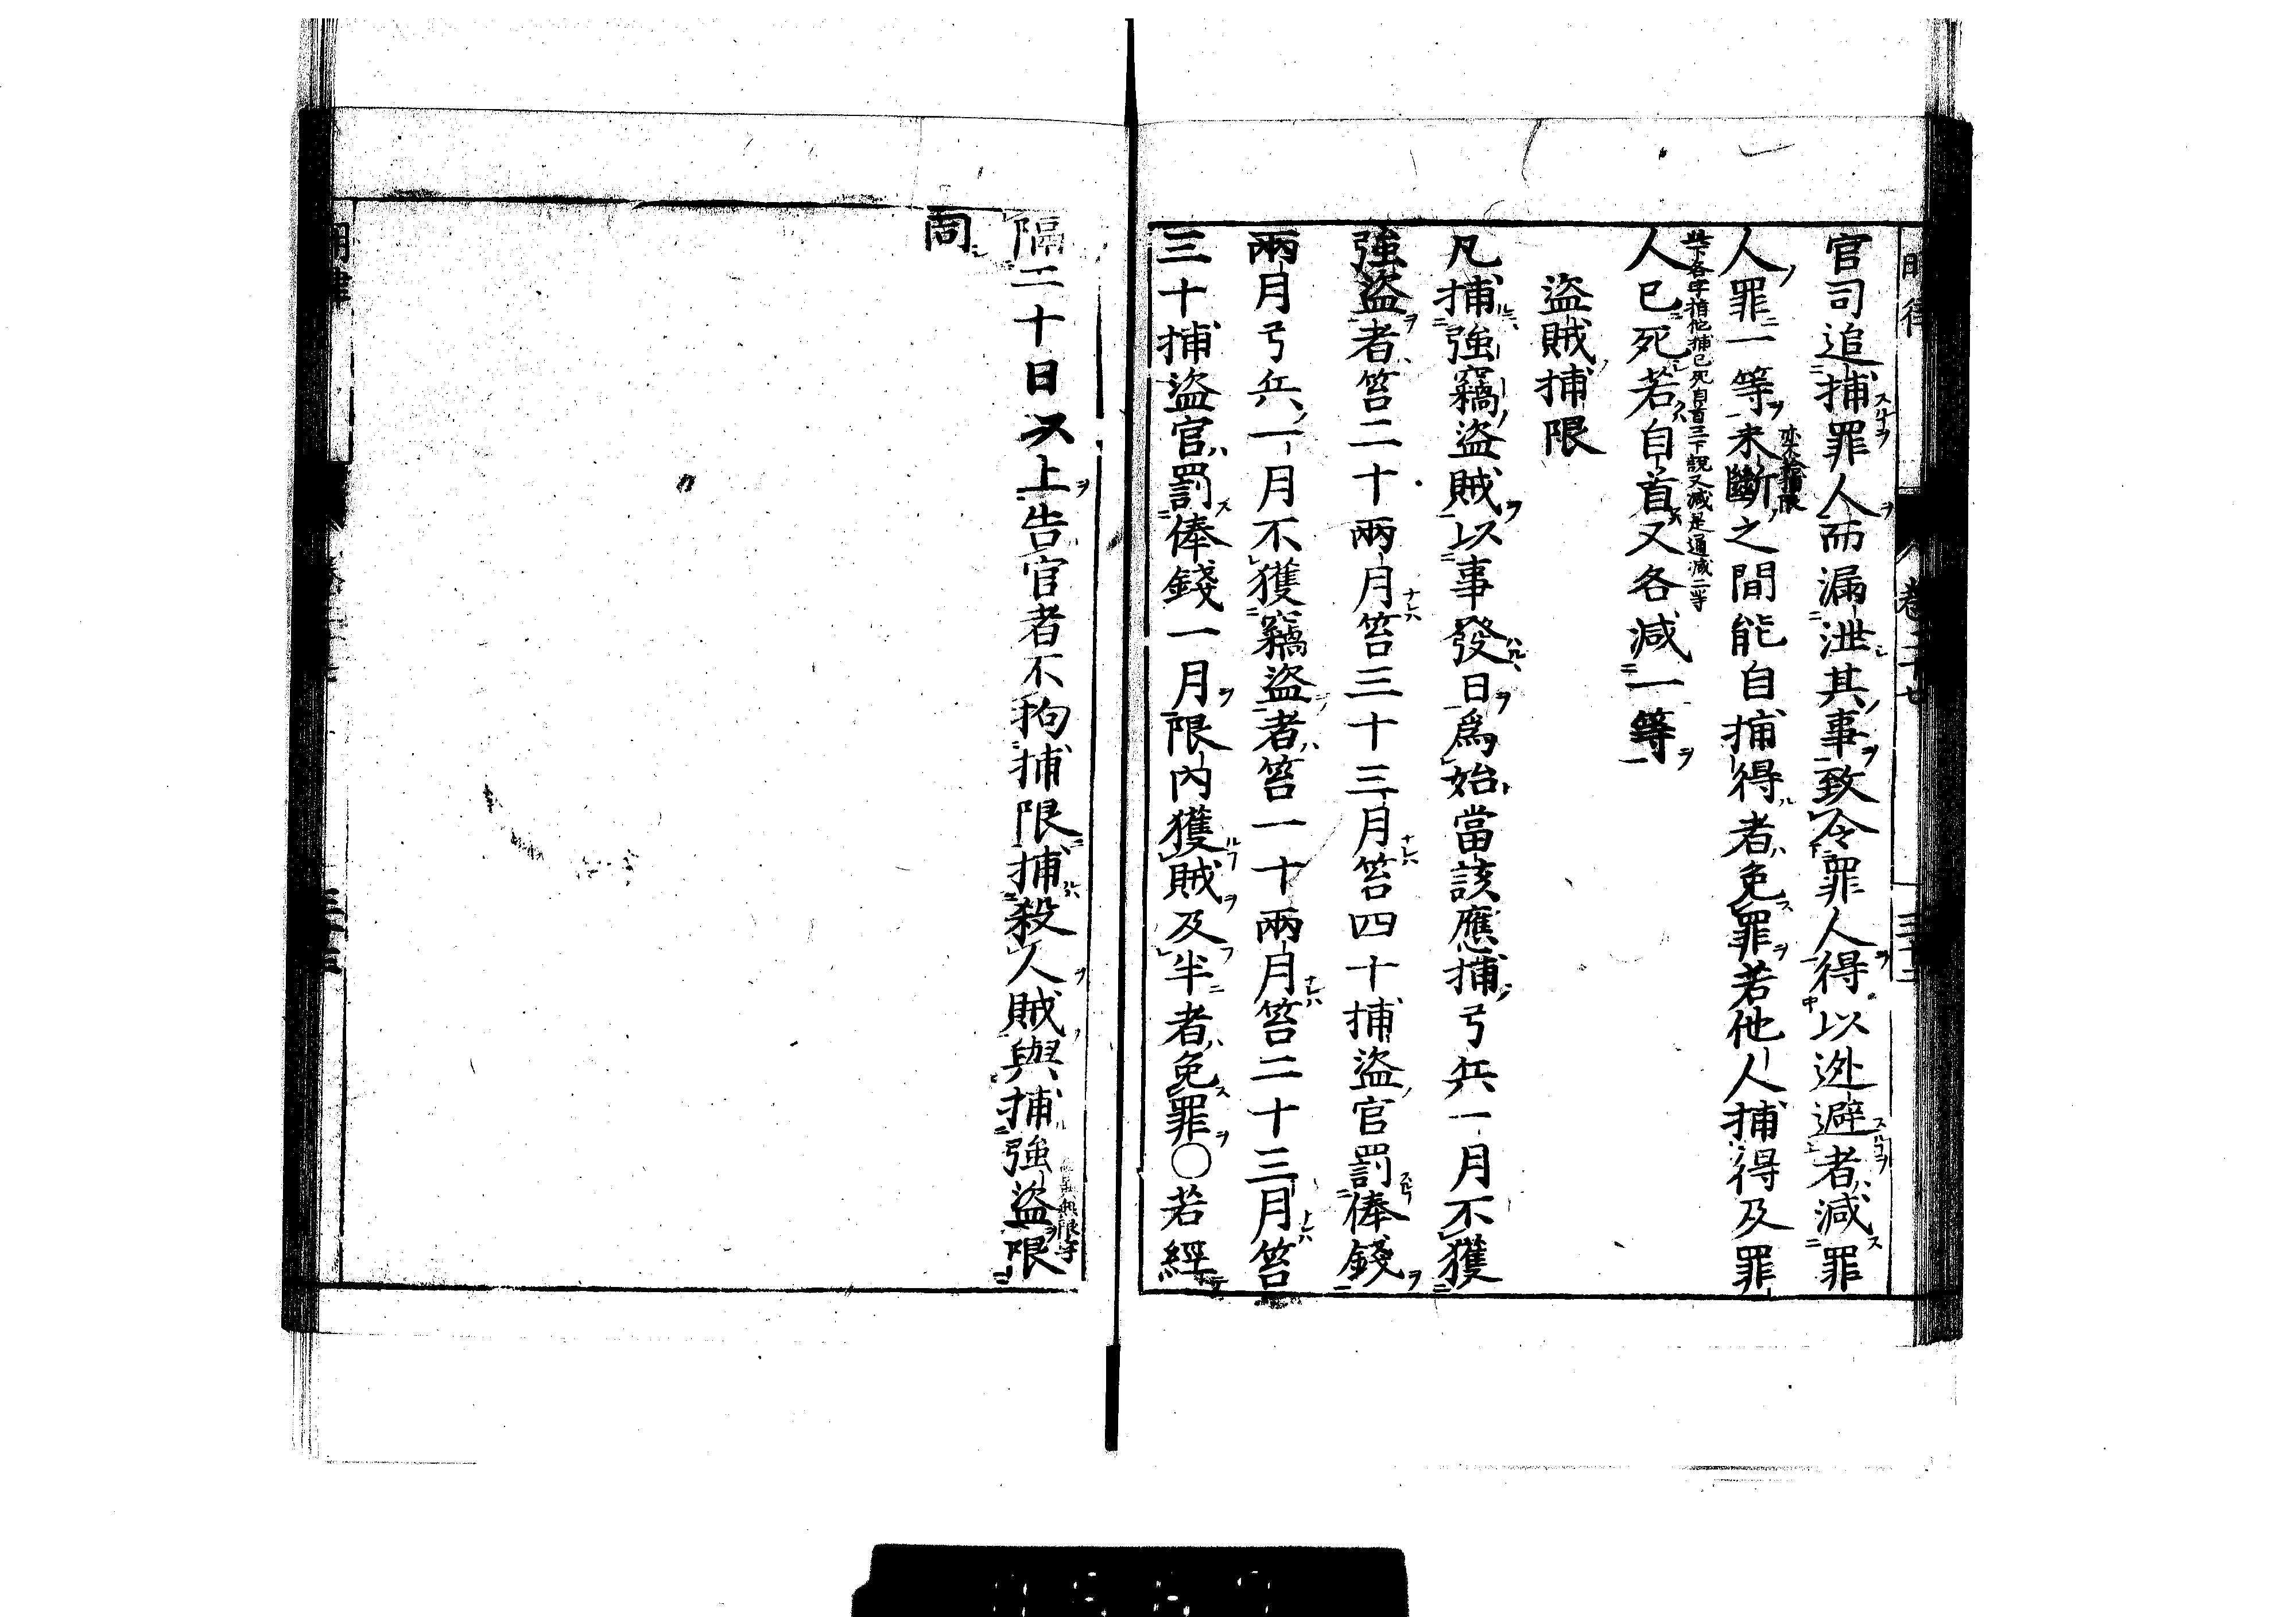 官司追捕罪人而漏泄其事致令罪人得以逃避者減罪
人罪一等未斷之間能自捕得者免罪若他人捕得及罪
人已死若自首又各減一等
盜賊捕限
凡捕強竊盜賊以事發日爲始當該應捕弓兵一月不獲
強盜者笞二十兩月笞三十三月笞四十捕盜官罰俸錢
兩月弓兵一月不獲竊盜者笞一十兩月笞二十三月笞
三十捕盜官罰俸錢一月限內獲賊及半者免罪○若經
隔二十日以上告官者不拘捕限捕殺人賊與捕強盜限
同